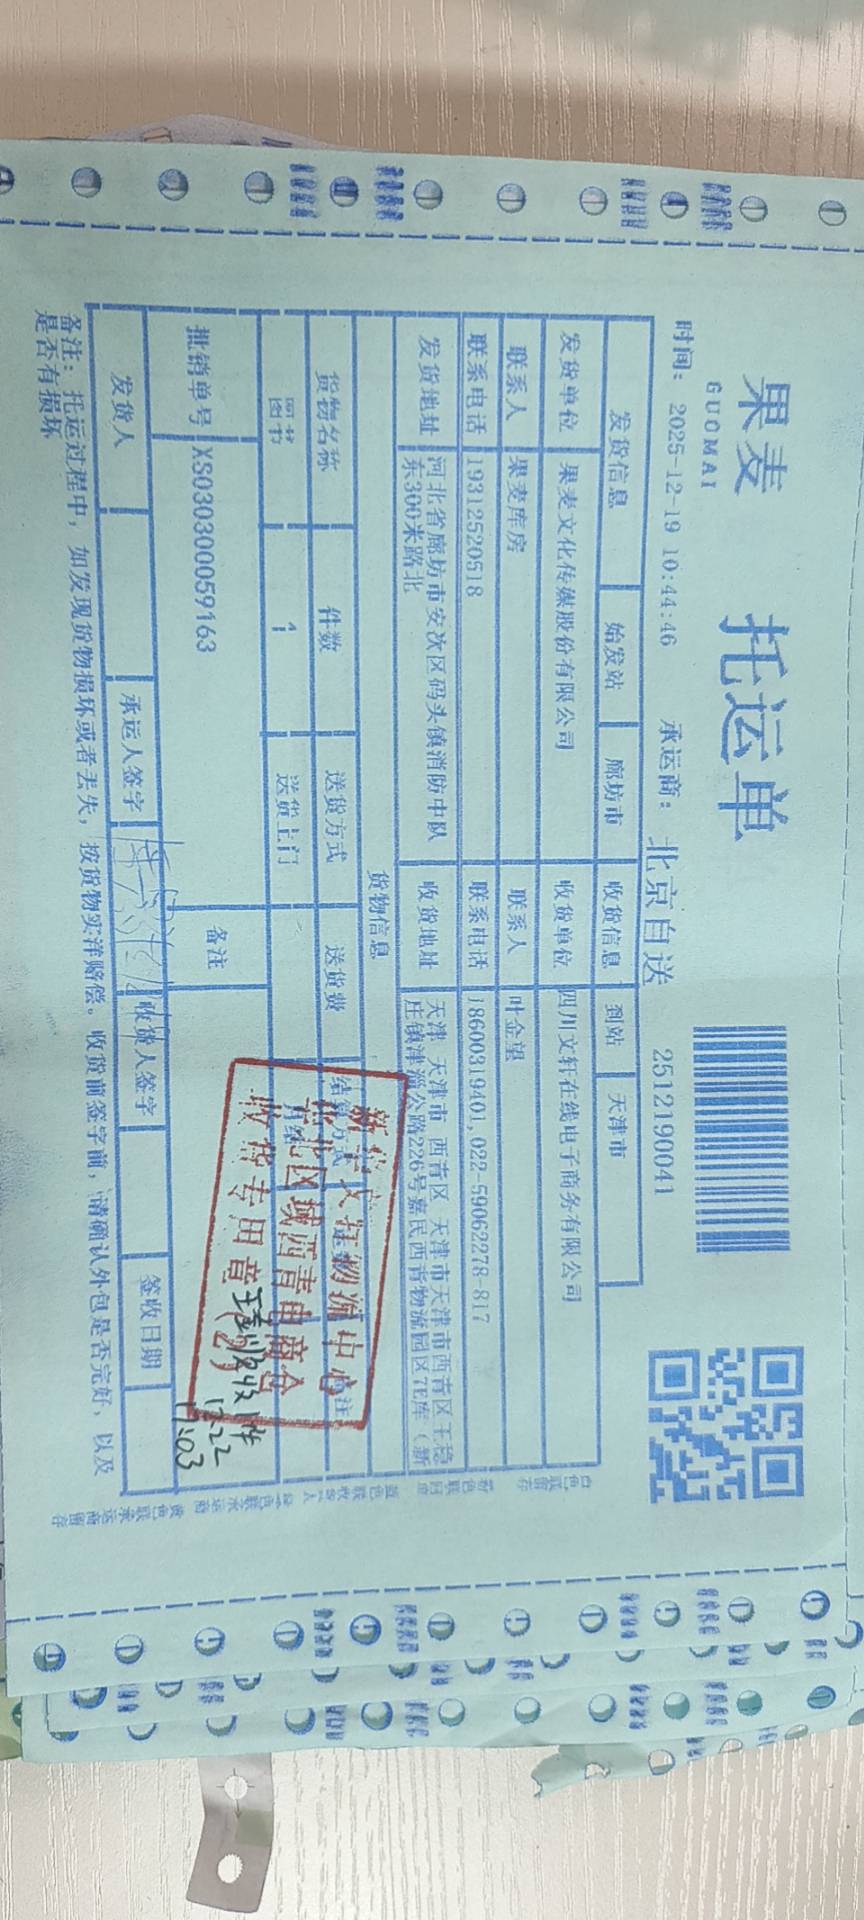 果麦 托运单
GUOMAI
时间：2025-12-19 10:44:46 承运商：北京自送 2512190041
发货信息 始发站 廊坊市 收货信息 到站 天津市
发货单位 果麦文化传媒股份有限公司 收货单位 四川文轩在线电子商务有限公司
联系人 果麦库房 联系人 叶金望
联系电话 19312520518 联系电话 18600319401,022-59062278-817
发货地址 河北省廊坊市安次区码头镇消防中队
东300米路北
收货地址 天津 天津市 西青区 天津市天津市西青区王稳
庄镇津淄公路226号嘉民西青物流园区7E库（新
货物信息
货物名称 件数 送货方式 送货费 结算方式 备注
图书 1 送货上门 月结
批销单号 XS030300059163 备注
发货人 承运人签字 收货人签字 签收日期
备注：托运过程中，如发现货物损坏或者丢失，按货物实洋赔偿。收货前签字前，请确认外包是否完好，以及
是否有损坏
新华文轩物流中心
华北区域西青电商仓
收货专用章
(2)
收1件
12.22
17:03
白色联留存
粉色联回单
蓝色联收货人
绿色联承运商
黄色联承运商留存